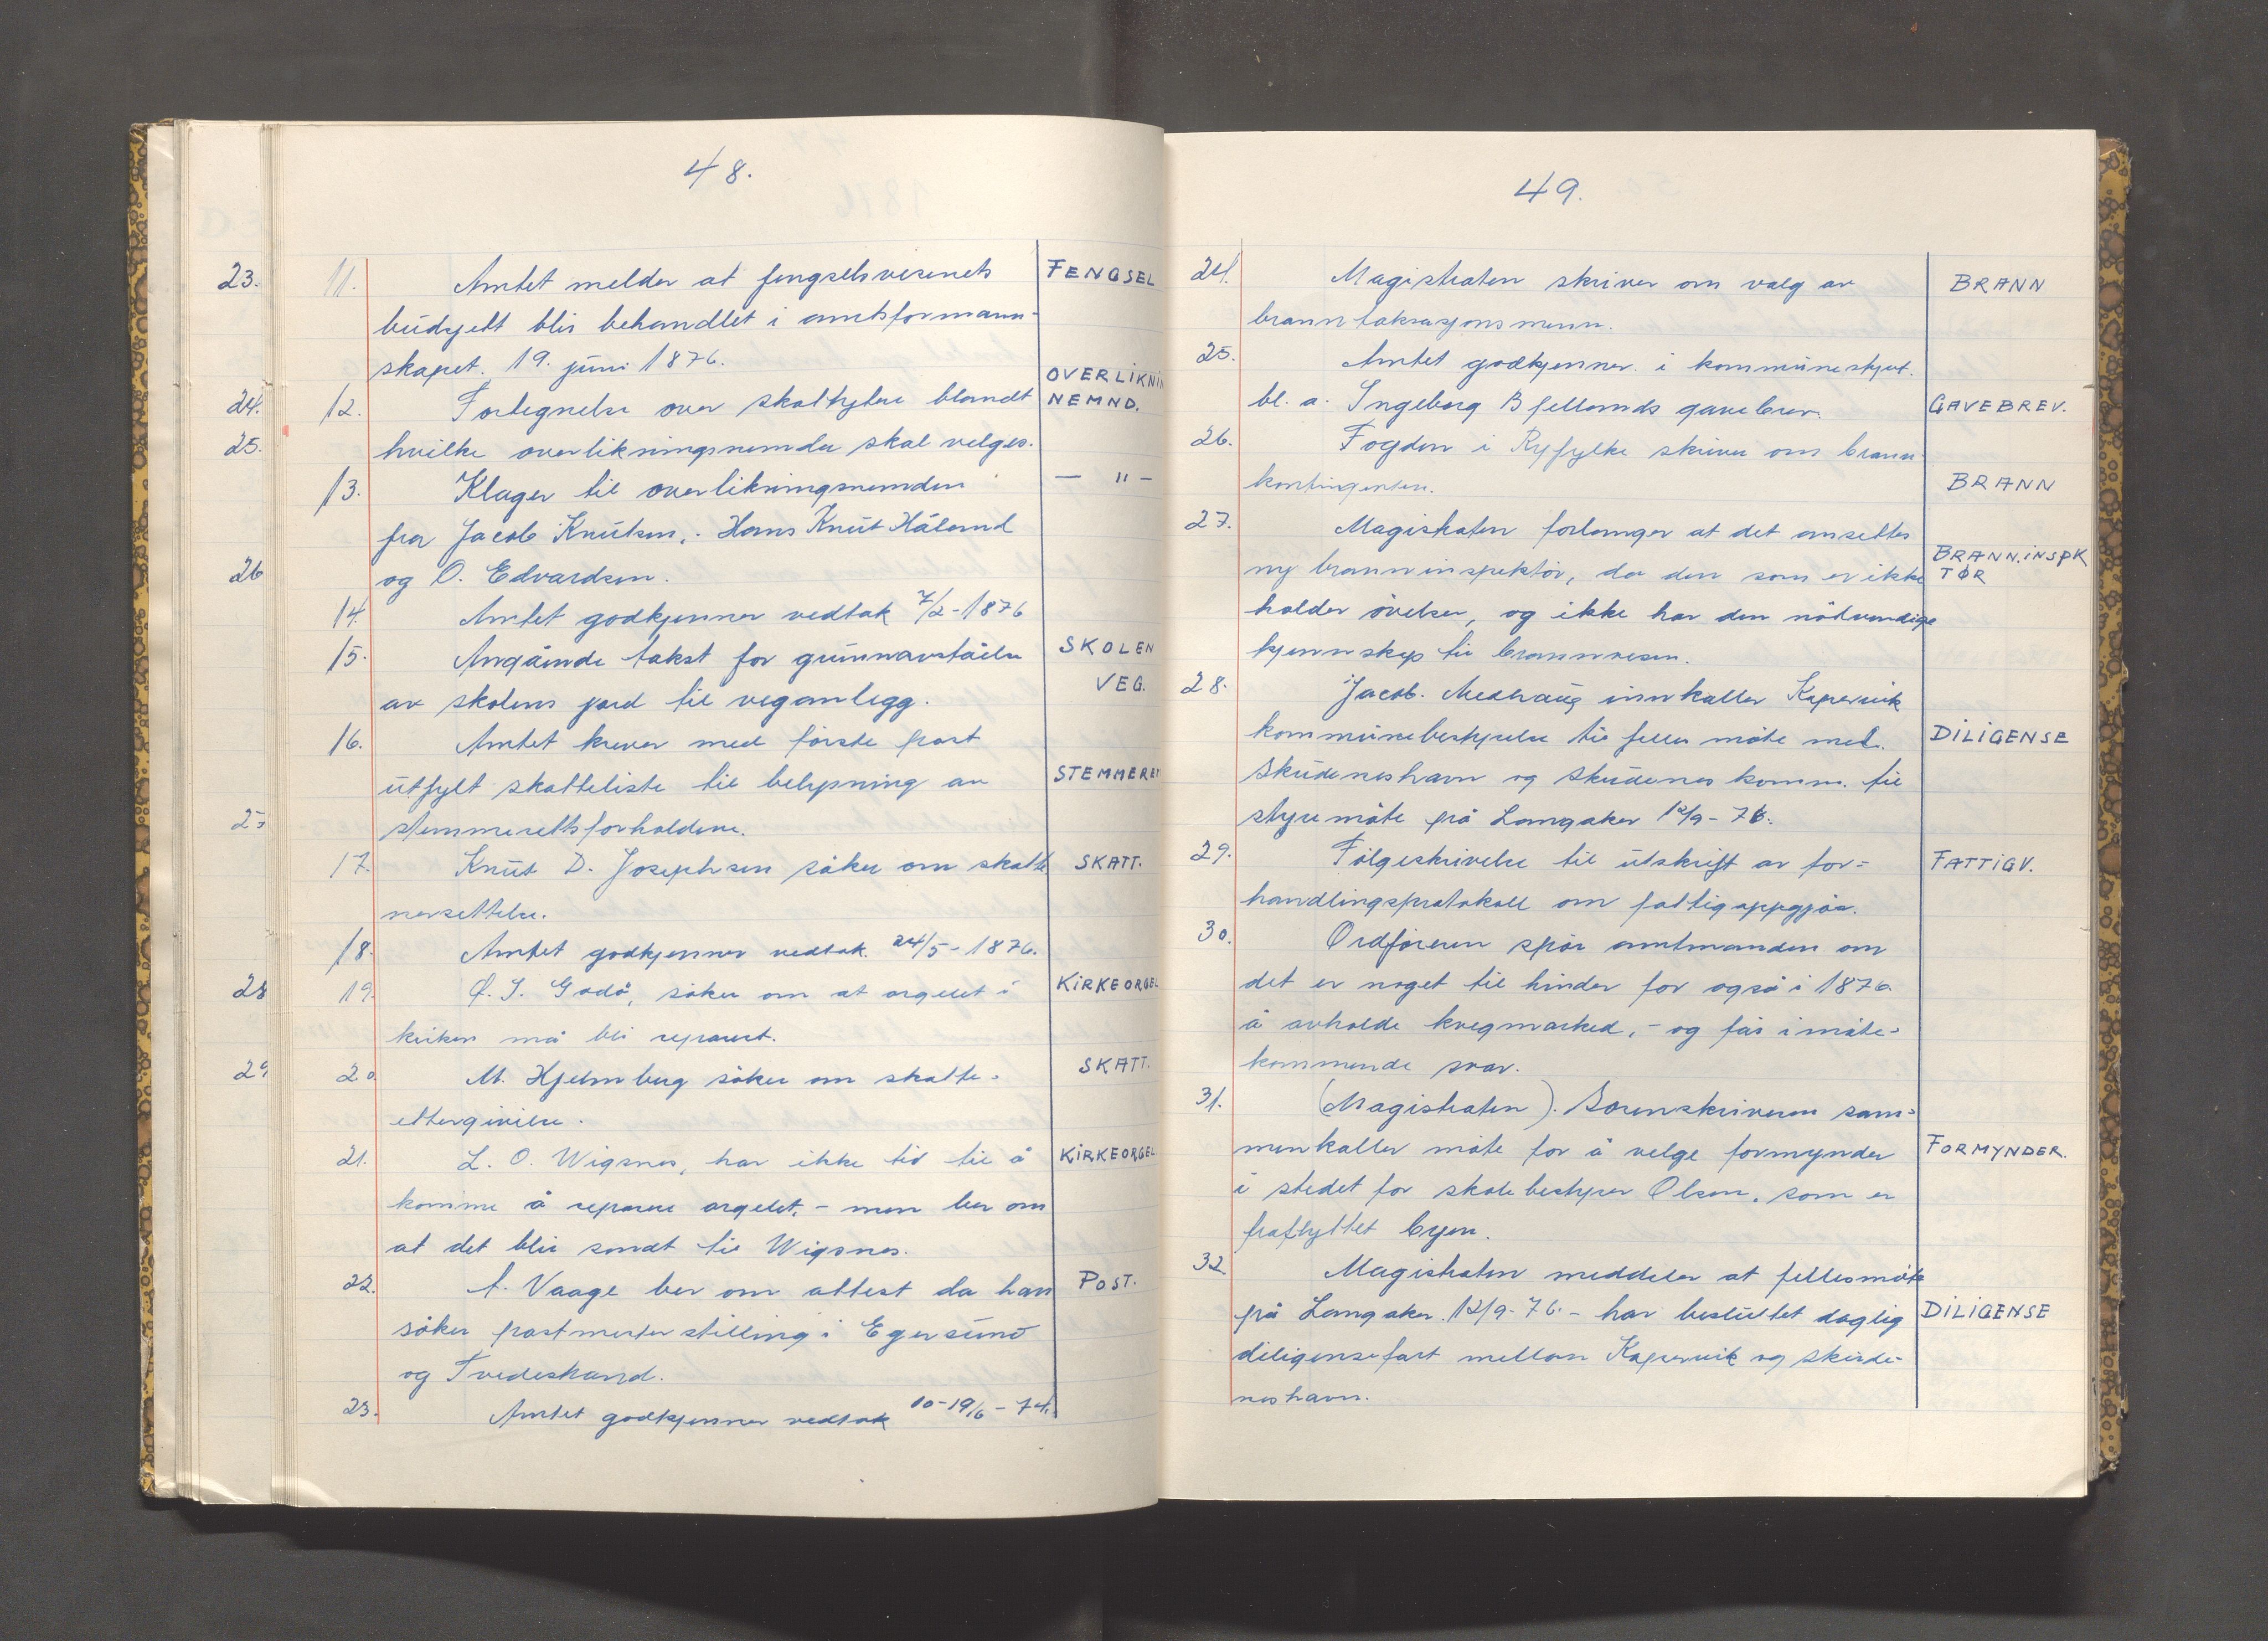 48.
23.
24.
25.
26
27
28
29
11. Amtet melder at fengselsvesenets FENGSEL
budsjett blir behandlet i amtsformann-
skapet. 19. juni 1876.
12. Fortegnelse over skattytere blandt OVERLIKNIN
NEMND.
hvilke overlikningsnemda skal velges.
13. Klager til overlikningsnemden — " —
fra Jacob Knutsen, - Hans Knut Håland
og O. Edvardsen.
14. Amtet godkjenner vedtak 7/2-1876
15. Angående takst for grunnavståelse SKOLEN
av skolens jord til veganlegg. VEG.
16. Amtet krever med første post
utfylt skatteliste til belysning av STEMMERET
stemmerettsforholdene.
17. Knut D. Josephsen søker om skatte SKATT.
nersettelse.
18. Amtet godkjenner vedtak 24/5-1876.
19. O. J. Godø, søker om at orgelet i KIRKEORGEL
kirken må bli reparert.
20 M. Hjelmberg søker om skatte- SKATT.
ettergivelse.
21. L. O. Wigsnes, har ikke tid til å KIRKEORGEL
komme å reparere orgelet, - men ber om
at det blir sendt til Wigsnes.
22. A. Vaage ber om attest da han POST.
søker postmester stilling i Egersund
og Tvedestrand.
23. Amtet godkjenner vedtak 10-19/6-74.
49.
24. Magistraten skriver om valg av BRANN
branntaksasjonsmenn.
25. Amtet godkjenner i kommunestyret.
bl. a. Ingeborg Bjellands gavebrev. GAVEBREV.
26. Fogden i Ryfylke skriver om brann-
kontingenten. BRANN
27. Magistraten forlanger at det ansettes
ny branninspektør, da den som er ikke BRANN.INSPK
TØR
holder øvelser, og ikke har den nødvendige
kjennskap til brannvesen.
28. Jacob. Medhaug innkaller Kopervik
kommunebestyrelse til felles møte med. DILIGENSE
Skudeneshavn og Skudenes komm. til
styremøte på Langaker 12/9-76.
29. Følgeskrivelse til utskrift av for- FATTIGV.
handlingsprotokoll om fattigoppgjør.
30. Ordføreren spør amtmanden om
det er noget til hinder for også i 1876
å avholde kvegmarked, - og får imøte-
kommende svar.
31. (Magistraten). Sorenskriveren sam-
menkaller møte for å velge formynder FORMYNDER.
i stedet for skolebestyrer Olsen, som er
fraflyttet byen.
32. Magistraten meddeler at fellesmøte
på Langaker. 12/9-76. - har besluttet daglig DILIGENSE
diligensefart mellom Kopervik og Skude-
neshavn.